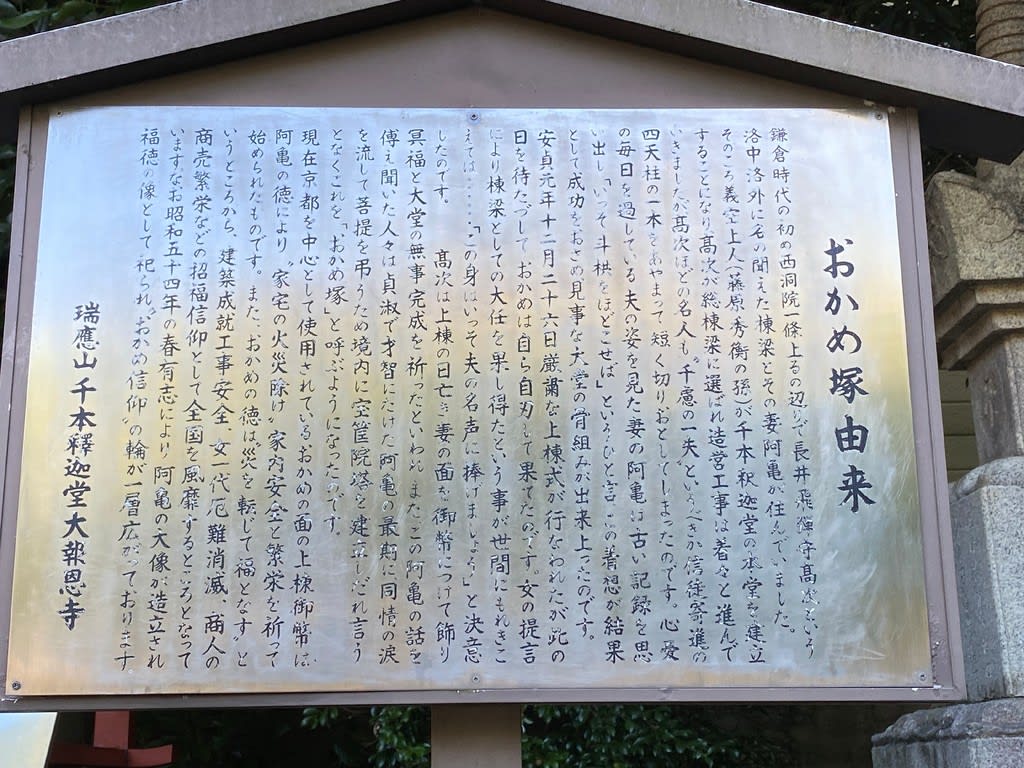 おかめ塚由来
鎌倉時代の初め西洞院一條上るの辺りで長井飛騨守高次という
洛中洛外に名の聞えた棟梁とその妻阿亀が住んでいました。
そのころ義空上人(藤原秀衡の孫)が千本釈迦堂の本堂を建立
することになり高次が総棟梁に選ばれ造営工事は着々と進んで
いきましたが高次ほどの名人も〝千慮の一失〟というべきか信徒寄進の
四天柱の一本をあやまって短く切りおとしてしまったのです。心憂
の毎日を過している夫の姿を見た妻の阿亀は古い記録を思
い出し「いっそ斗栱をほどこせば」というひと言、この着想が結果
として成功をおさめ見事な大堂の骨組みが出来上ったのです。
安貞元年十二月二十六日厳粛な上棟式が行なわれたが此の
日を待たずして、おかめは自ら自刃して果てたのです。女の提言
により棟梁としての大任を果し得たという事が世間にもれきこ
えては‥‥「この身はいっそ夫の名声に捧げましょう」と決意
したのです。 高次は上棟の日亡き妻の面を御幣につけて飾り
冥福と大堂の無事完成を祈ったといわれ、またこの阿亀の話を
傳え聞いた人々は貞淑で才智にたけた阿亀の最期に同情の涙
を流して菩提を弔うため境内に宝筐院塔を建立しだれ言う
となくこれを「おかめ塚」と呼ぶようになったのです。
現在京都を中心として使用されているおかめの面の上棟御幣は、
阿亀の徳により〝家宅の火災除け〟家内安全と繁栄を祈って
始められたものです。また、おかめの徳は〝災を転じて福となす〟と
いうところから、建築成就工事安全、女一代厄難消滅、商人の
商売繁栄などの招福信仰として全国を風靡するところとなって
います。なお昭和五十四年の春有志により阿亀の大像が造立され
福徳の像として祀られ〝おかめ信仰〟の輪が一層広がっております。
瑞應山千本釋迦堂大報恩寺